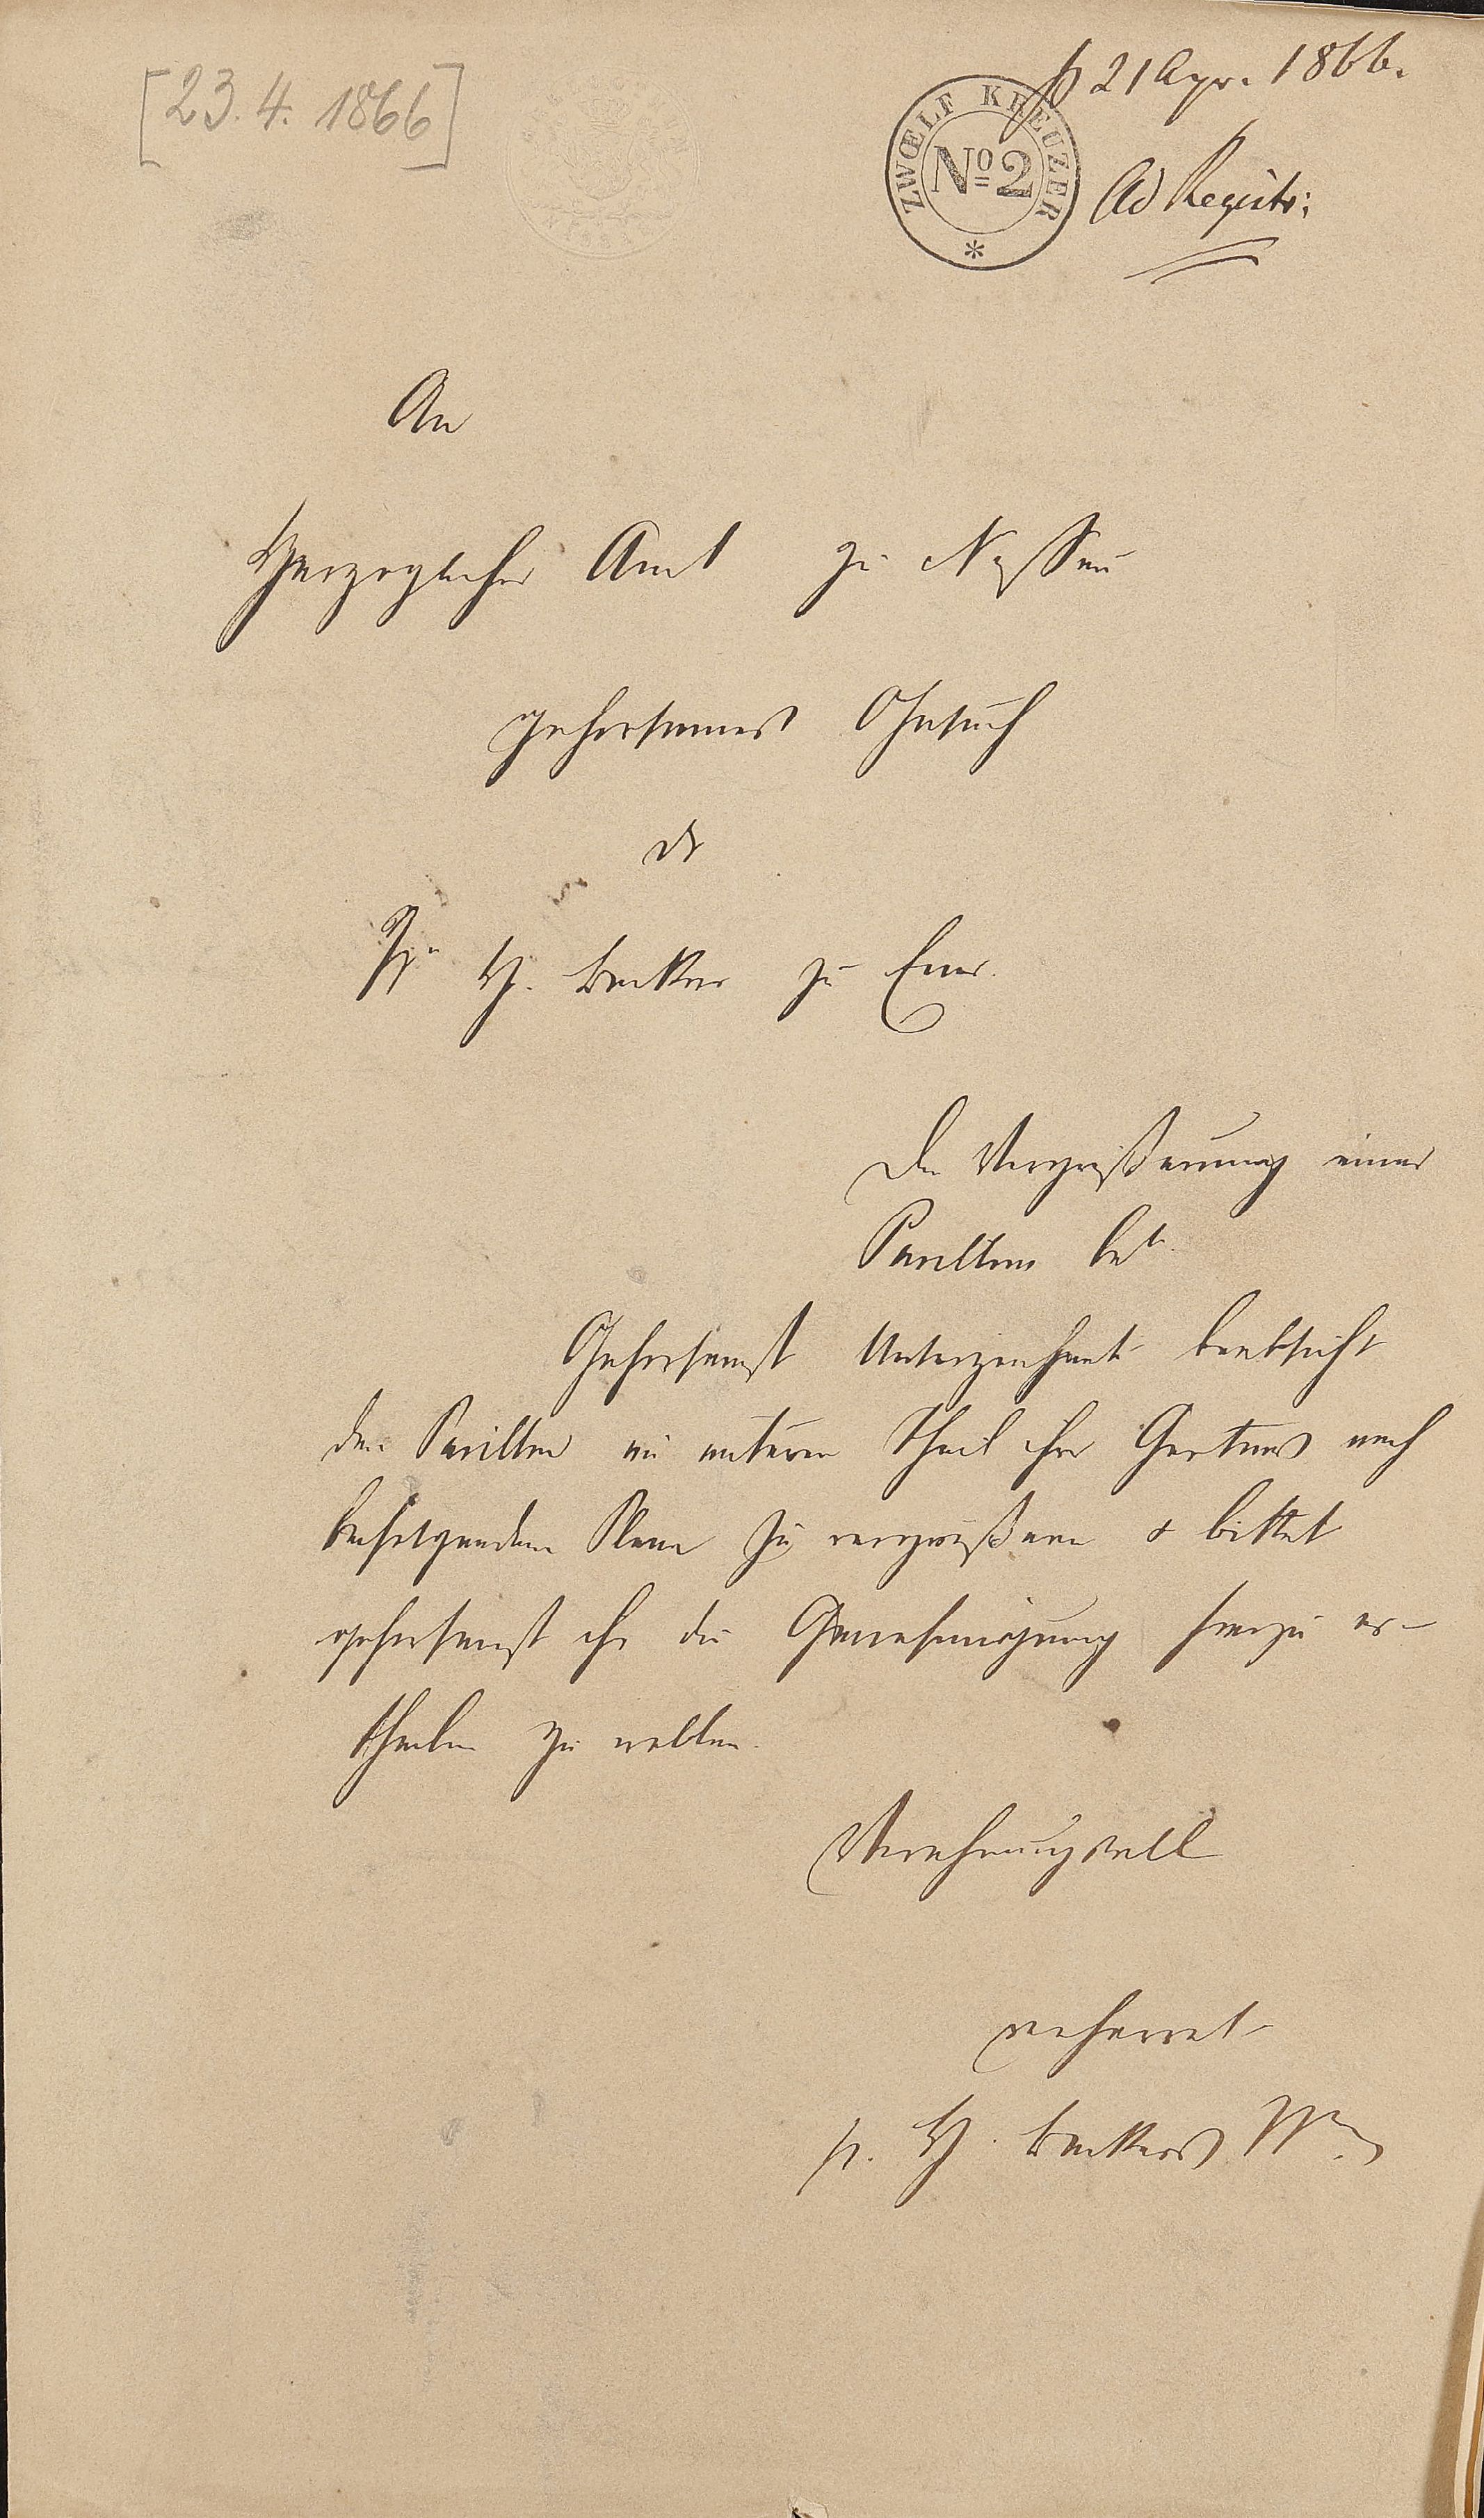 [23.4.1866]
p 21 Apr. 1866.
ZWŒLF KREUZER
No 2
Ad Registr:
An
Herzogliches Amt zu Nassau
gehorsamst Gesuch
der
H. Becker zu Ems.
Die Vergrößerung eines
Pavillons bet.
Gehorsamst Unterzeichnete beabsicht
den Pavillon im unteren Theil ihres Gartens nach
beifolgendem Plane zu vergrößern & bittet
gehorsamst ihr die Genehmigung hierzu er-
theilen zu wollen.
Verehrungsvoll
verharret
H. Beckers